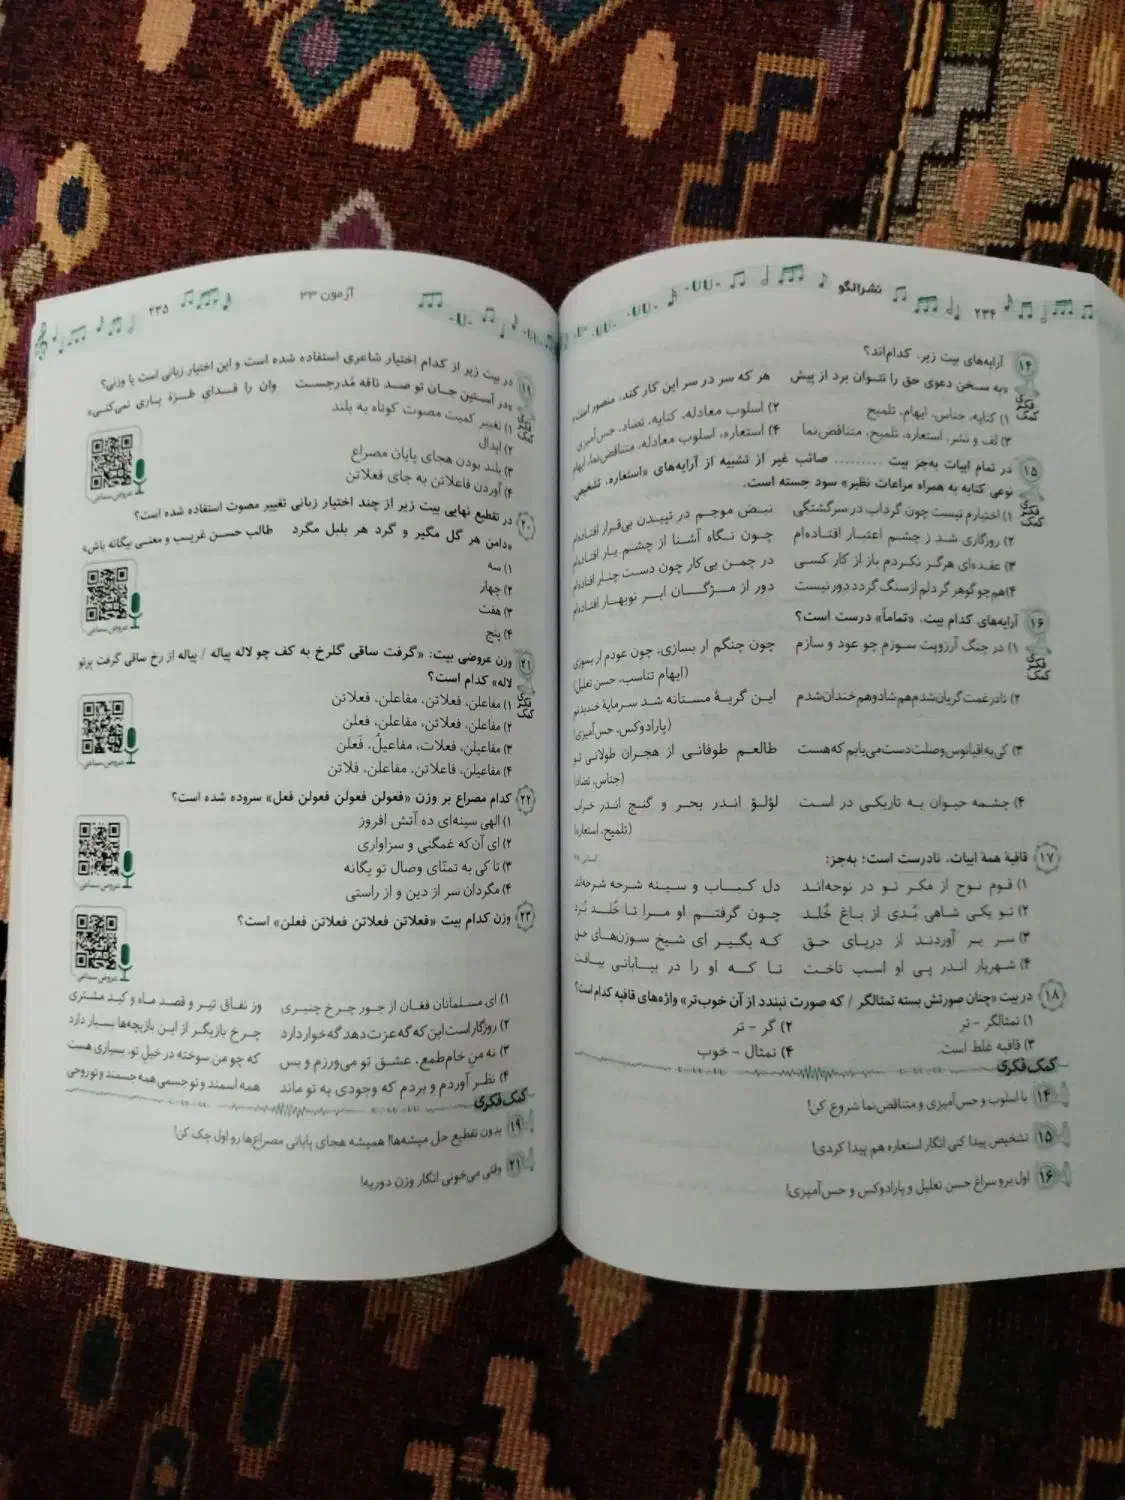 ۲۳۴
نشرالگو
۱۴
آرایه‌های بیت زیر، کدام‌اند؟
«به سخن دعوی حق را نتوان برد از پیش هر که سر در سر این کار کند، منصور است»
کمک فکری
۱) کنایه، جناس، ایهام، تلمیح
۲) اسلوب معادله، کنایه، تضاد، حس‌آمیزی
۳) لف و نشر، استعاره، تلمیح، متناقض‌نما
۴) استعاره، اسلوب معادله، متناقض‌نما، ایهام
۱۵
در تمام ابیات به‌جز بیت ......... صائب غیر از تشبیه از آرایه‌های «استعاره، تشخیص
نوعی کنایه به همراه مراعات نظیر» سود جسته است.
کمک فکری
۱) اختیارم نیست چون گرداب در سرگشتگی نبض موجم در تپیدن بی‌قرار افتاده‌ام
۲) روزگاری شد ز چشم اعتبار افتاده‌ام چون نگاه آشنا از چشم یار افتاده‌ام
۳) عقده‌ای هرگز نکردم باز از کار کسی در چمن بی‌کار چون دست چنار افتاده‌ام
۴) هم‌چو گوهر گر دلم از سنگ گردد دور نیست دور از مژگان ابر نوبهار افتاده‌ام
۱۶
آرایه‌های کدام بیت، «تماماً» درست است؟
کمک فکری
۱) در چنگ آرزویت سوزم چو عود و سازم چون چنگم ار بسازی، چون عودم ار بسوزی
(ایهام تناسب، حسن تعلیل)
۲) تا در غمت گریان شدم هم شاد و هم خندان شدم این گریهٔ مستانه شد سرمایهٔ خندیدنم
(پارادوکس، حس‌آمیزی)
۳) کی به اقیانوس وصلت دست می‌یابم که هست طالعم طوفانی از هجران طولانی تو
(جناس، تضاد)
۴) چشمه حیوان به تاریکی در است لؤلؤ اندر بحر و گنج اندر خراب
(تلمیح، استعاره)
۱۷
قافیهٔ همهٔ ابیات، نادرست است؛ به‌جز:
۱) قوم نوح از مکر تو در نوحه‌اند دل کباب و سینه شرحه شرحه‌اند
۲) تو یکی شاهی بُدی از باغ خُلد چون گرفتم او مرا تا خُلد بُرد
۳) سر بر آوردند از دریای حق که بگیر ای شیخ سوزن‌های حق
۴) شهریار اندر پی او اسب تاخت تا که او را در بیابانی بیافت
۱۸
در بیت «چنان صورتش بسته تمثالگر / که صورت نبندد از آن خوب‌تر» واژه‌های قافیه کدام است؟
۱) تمثالگر - تر
۲) گر - تر
۳) قافیه غلط است.
۴) تمثال - خوب
کمک فکری
۱۴ با اسلوب و حس‌آمیزی و متناقض‌نما شروع کن!
۱۵ تشخیص پیدا کنی انگار استعاره هم پیدا کردی!
۱۶ اول برو سراغ حسن تعلیل و پارادوکس و حس‌آمیزی!
آزمون ۳۳
۲۳۵
۱۹
در بیت زیر از کدام اختیار شاعری استفاده شده است و این اختیار زبانی است یا وزنی؟
«در آستین جان تو صد نافه مُدرجست وان را فدای طرّهٔ یاری نمی‌کنی»
کمک فکری
۱) تغییر کمیت مصوت کوتاه به بلند
۲) ابدال
۳) بلند بودن هجای پایان مصراع
۴) آوردن فاعلاتن به جای فعلاتن
عروض سماعی
۲۰
در تقطیع نهایی بیت زیر از چند اختیار زبانی تغییر مصوت استفاده شده است؟
«دامن هر گل مگیر و گرد هر بلبل مگرد طالب حسن غریب و معنی بیگانه باش»
۱) سه
۲) چهار
۳) هفت
۴) پنج
عروض سماعی
۲۱
وزن عروضی بیت: «گرفت ساقی گلرخ به کف چو لاله پیاله / پیاله از رخ ساقی گرفت پرتو
لاله» کدام است؟
کمک فکری
۱) مفاعلن، فعلاتن، مفاعلن، فعلاتن
۲) مفاعلن، فعلاتن، مفاعلن، فعلن
۳) مفاعیلن، فعلات، مفاعیلُ، فَعلن
۴) مفاعیلن، فاعلاتن، مفاعلن، فلاتن
عروض سماعی
۲۲
کدام مصراع بر وزن «فعولن فعولن فعولن فعل» سروده شده است؟
۱) الهی سینه‌ای ده آتش افروز
۲) ای آن‌که غمگنی و سزاواری
۳) تا کی به تمنّای وصال تو یگانه
۴) مگردان سر از دین و از راستی
عروض سماعی
۲۳
وزن کدام بیت «فعلاتن فعلاتن فعلاتن فعلن» است؟
عروض سماعی
۱) ای مسلمانان فغان از جور چرخ چنبری وز نفاق تیر و قصد ماه و کید مشتری
۲) روزگار است این که گه عزت دهد گه خوار دارد چرخ بازیگر از این بازیچه‌ها بسیار دارد
۳) نه من خام‌طمع، عشق تو می‌ورزم و بس که چو من سوخته در خیل تو، بسیاری هست
۴) نظر آوردم و بردم که وجودی به تو ماند همه اسمند و تو جسمی همه جسمند و تو روحی
کمک فکری
۱۹ بدون تقطیع حل میشه‌ها! همیشه هجای پایانی مصراع‌ها رو اول چک کن!
۲۱ وقتی می‌خونی انگار وزن دوریه!